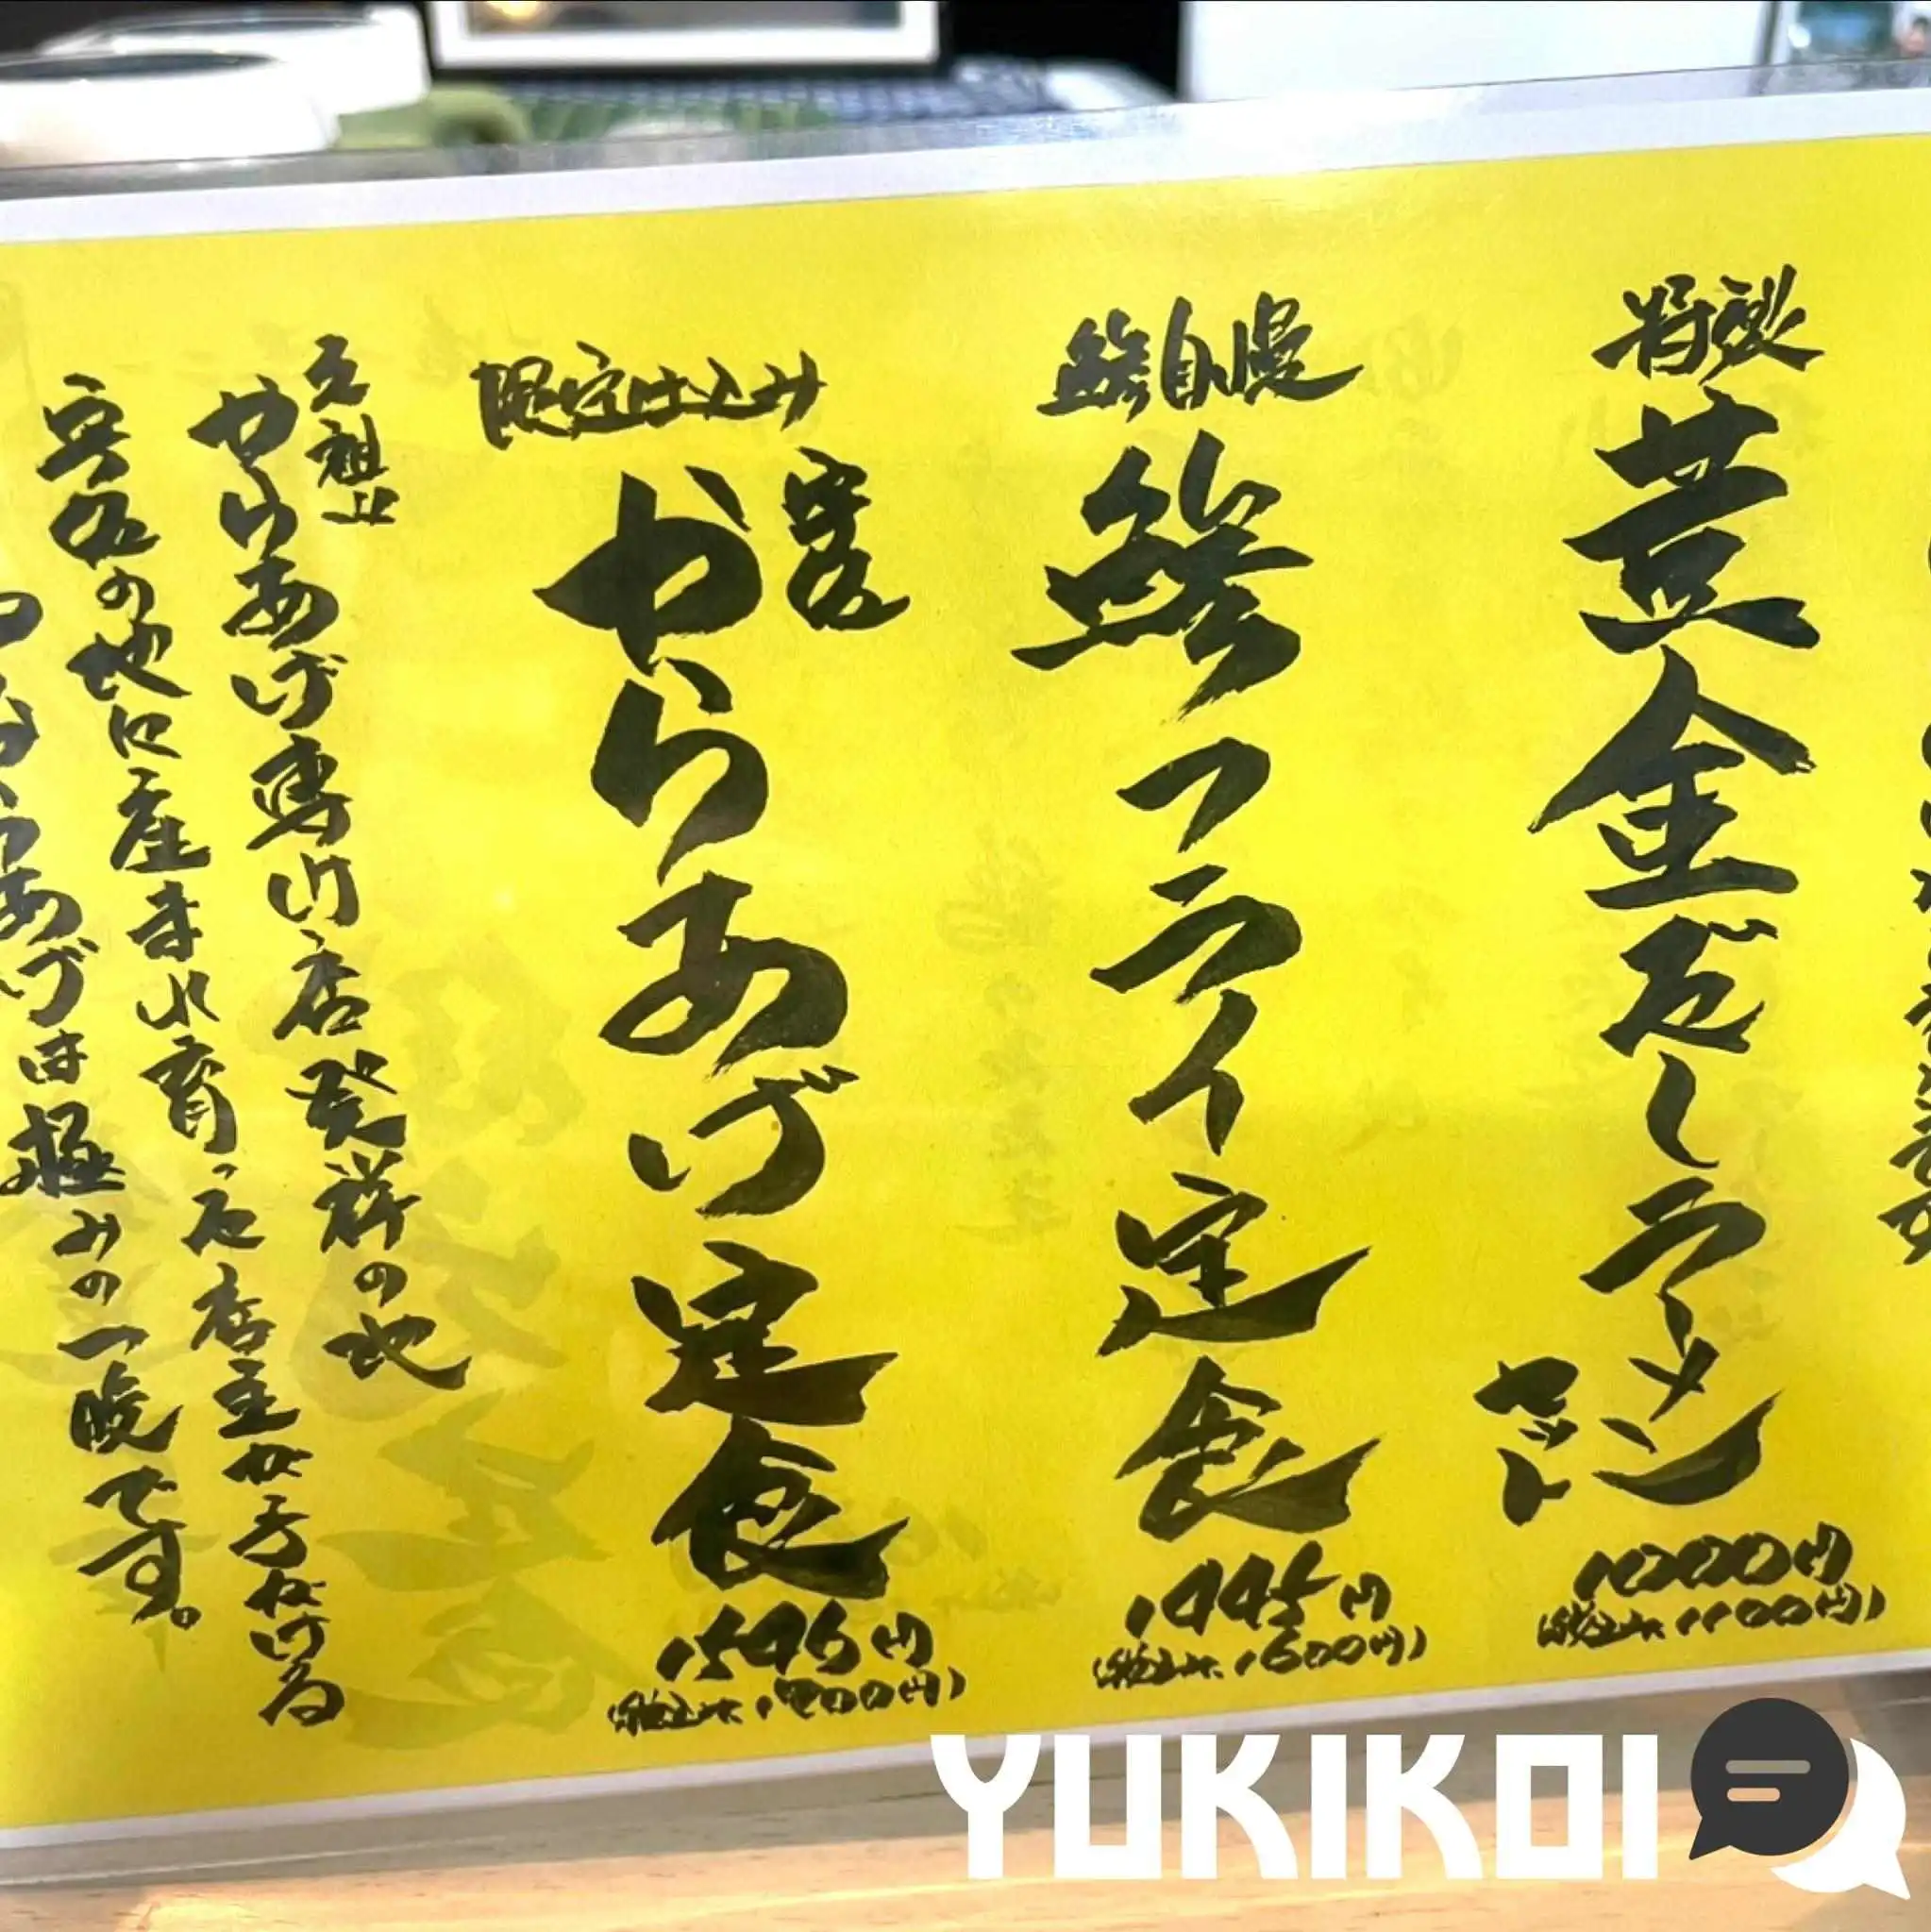 特製
黄金だしラーメン
セット
1000円
(税込み1100円)
鯵自慢
鯵フライ定食
1445円
(税込み1600円)
限定仕込み
宇佐
からあげ定食
1546円
(税込み1700円)
元祖!!
からあげ専門店発祥の地
宇佐の地に産まれ育った店主が手がける
からあげは極みの一 です。
YUKIKOI